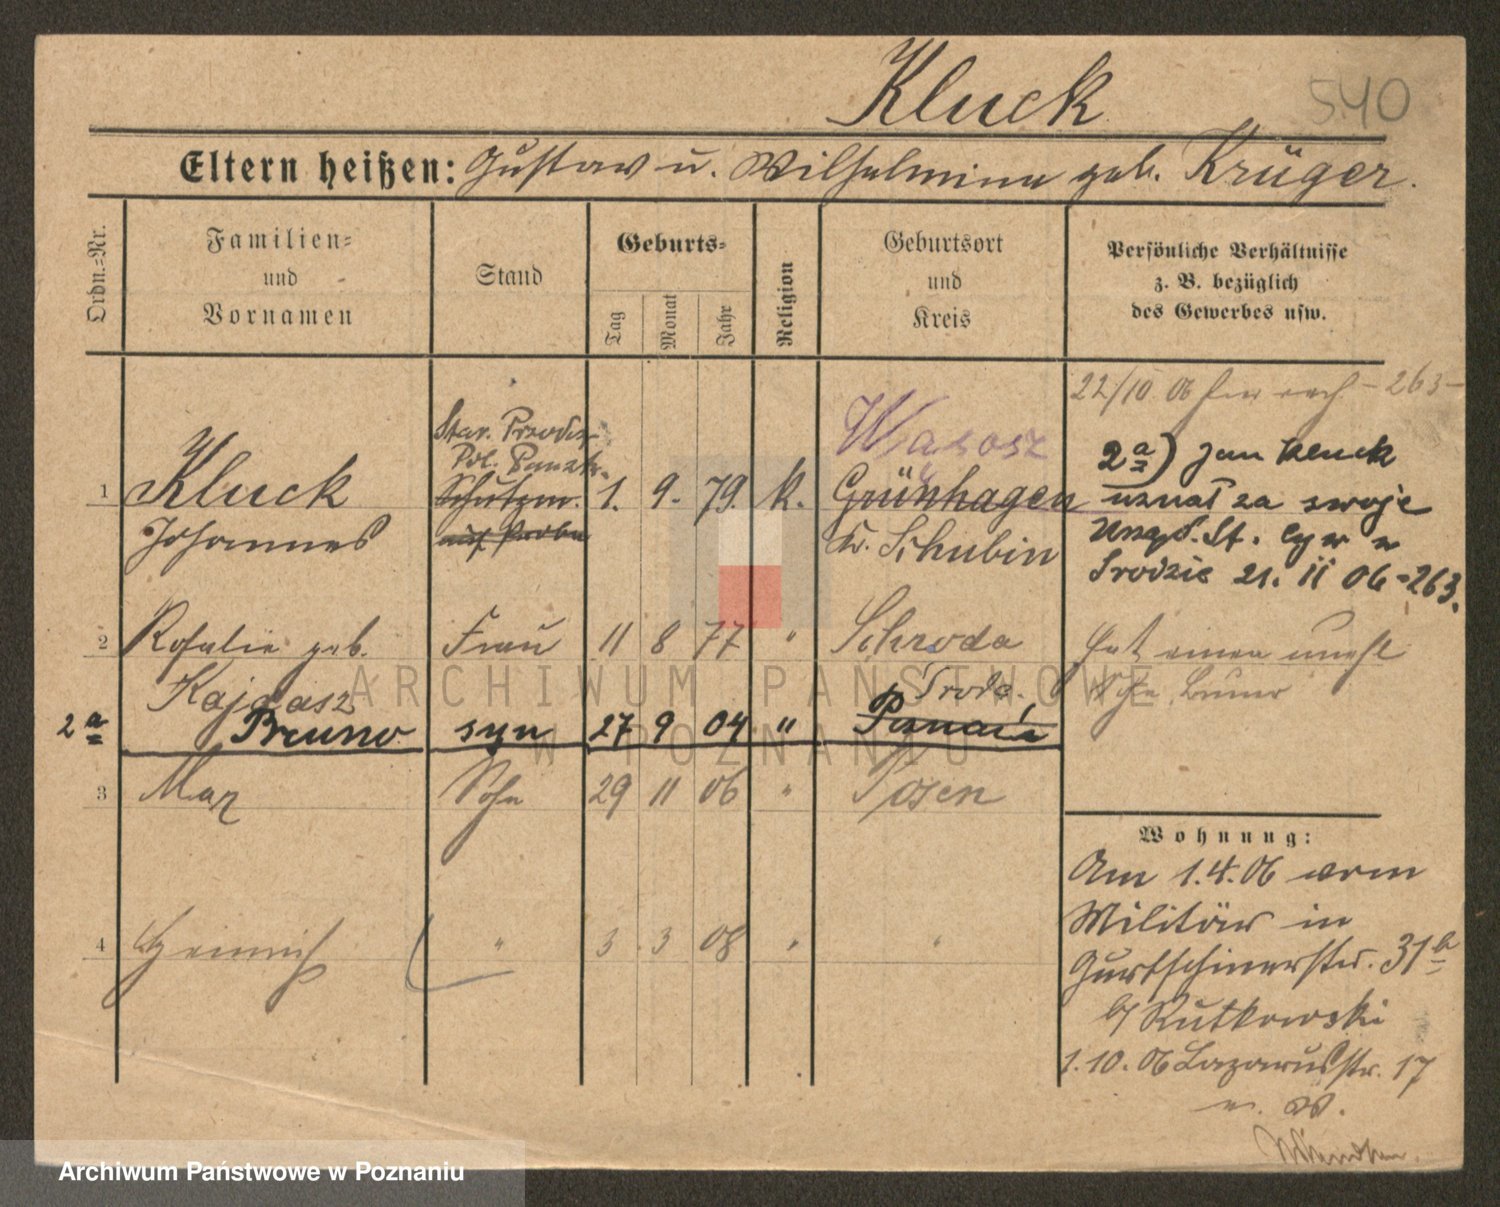 Kluck
540
Eltern heißen: Gustav u. Wilhelmine geb. Krüger.
Ordn.-Nr.
Familien-
und
Vornamen
Stand
Geburts-
Tag
Monat
Jahr
Religion
Geburtsort
und
Kreis
Persönliche Verhältnisse
z. B. bezüglich
des Gewerbes usw.
22/10 06 - 263 -
Star. Przodow.
Pol. Państw.
Wąsosz
1 Kluck Schutzm. 1. 9. 79. k. Grünhagen
Johannes auf Probe Kr. Schubin
2a) Jan Kluck
uznał za swoje
Urząd. St. Cyw w
Środzie 21. II 06 - 263.
2 Rosalie geb. Frau 11 8 77 " Schroda
Kajdasz Środa,
2a Bruno syn 27 9 04 " Poznań
hat einen unehl
Sohn Bruno
3 Max Sohn 29 11 06 " Posen
4 Heinrich " 3 3 08 " "
Wohnung:
Am 1.4.06 vom
Militär in
Gurtschinerstr. 31b
b/ Rutkowski
1.10.06 Lazarusstr. 17
ARCHIWUM PAŃSTWOWE
W POZNANIU
Archiwum Państwowe w Poznaniu